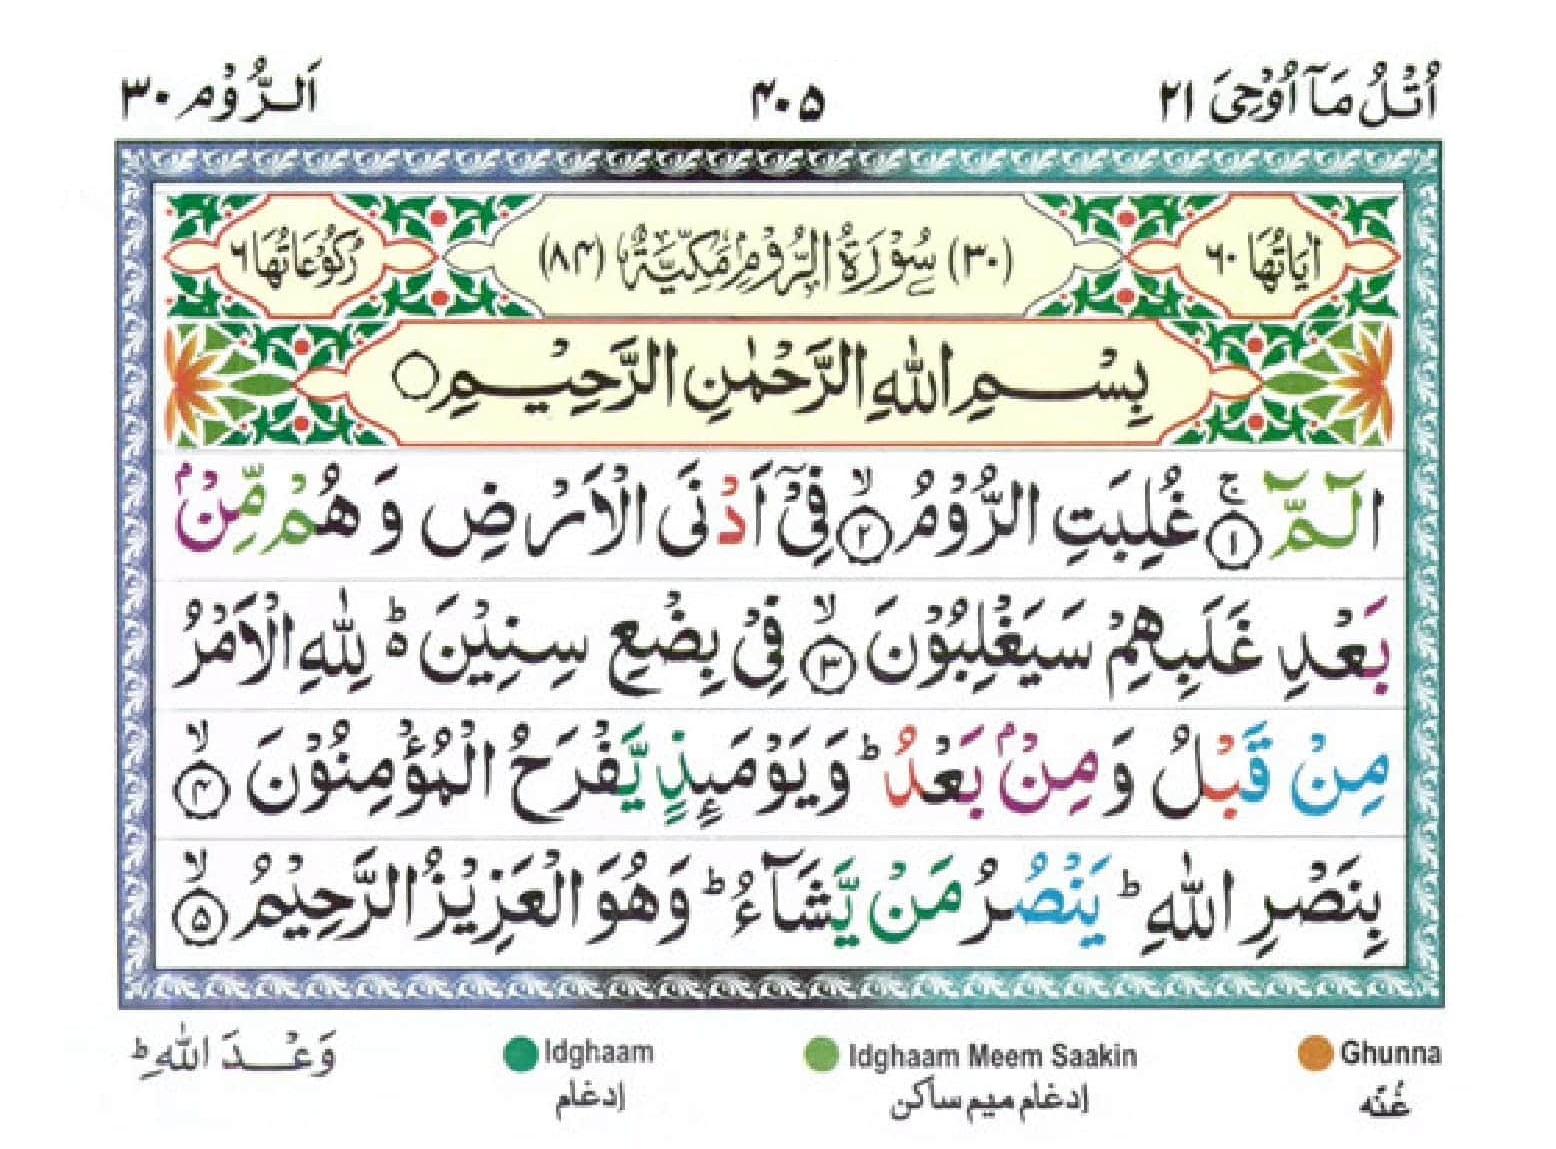 اُتْلُ مَاۤ اُوْحِیَ ٢١
۴۰۵
اَلرُّوْم ٣٠
اٰیَاتُهَا ٦٠
(٣٠) سُوْرَةُ الرُّوْمِ مَکِّیَّةٌ (٨۴)
رُکُوْعَاتُهَا ٦
بِسْمِ اللّٰهِ الرَّحْمٰنِ الرَّحِیْمِ ۝
الٓمّٓ ۚ‏﴿١﴾ غُلِبَتِ الرُّوْمُ ۙ‏﴿٢﴾ فِیْۤ اَدْنَی الْاَرْضِ وَ هُمْ مِّنْۢ
بَعْدِ غَلَبِهِمْ سَیَغْلِبُوْنَ ۙ‏﴿٣﴾ فِیْ بِضْعِ سِنِیْنَ ؕ۬ لِلّٰهِ الْاَمْرُ
مِنْ قَبْلُ وَ مِنْۢ بَعْدُ ؕ وَ یَوْمَىِٕذٍ یَّفْرَحُ الْمُؤْمِنُوْنَ ۙ‏﴿۴﴾
بِنَصْرِ اللّٰهِ ؕ یَنْصُرُ مَنْ یَّشَآءُ ؕ وَ هُوَ الْعَزِیْزُ الرَّحِیْمُ ۙ‏﴿۵﴾
وَعْدَ اللّٰهِ ؕ
Ghunna
غُنّه
Idghaam Meem Saakin
إدغام میم ساکن
Idghaam
إدغام